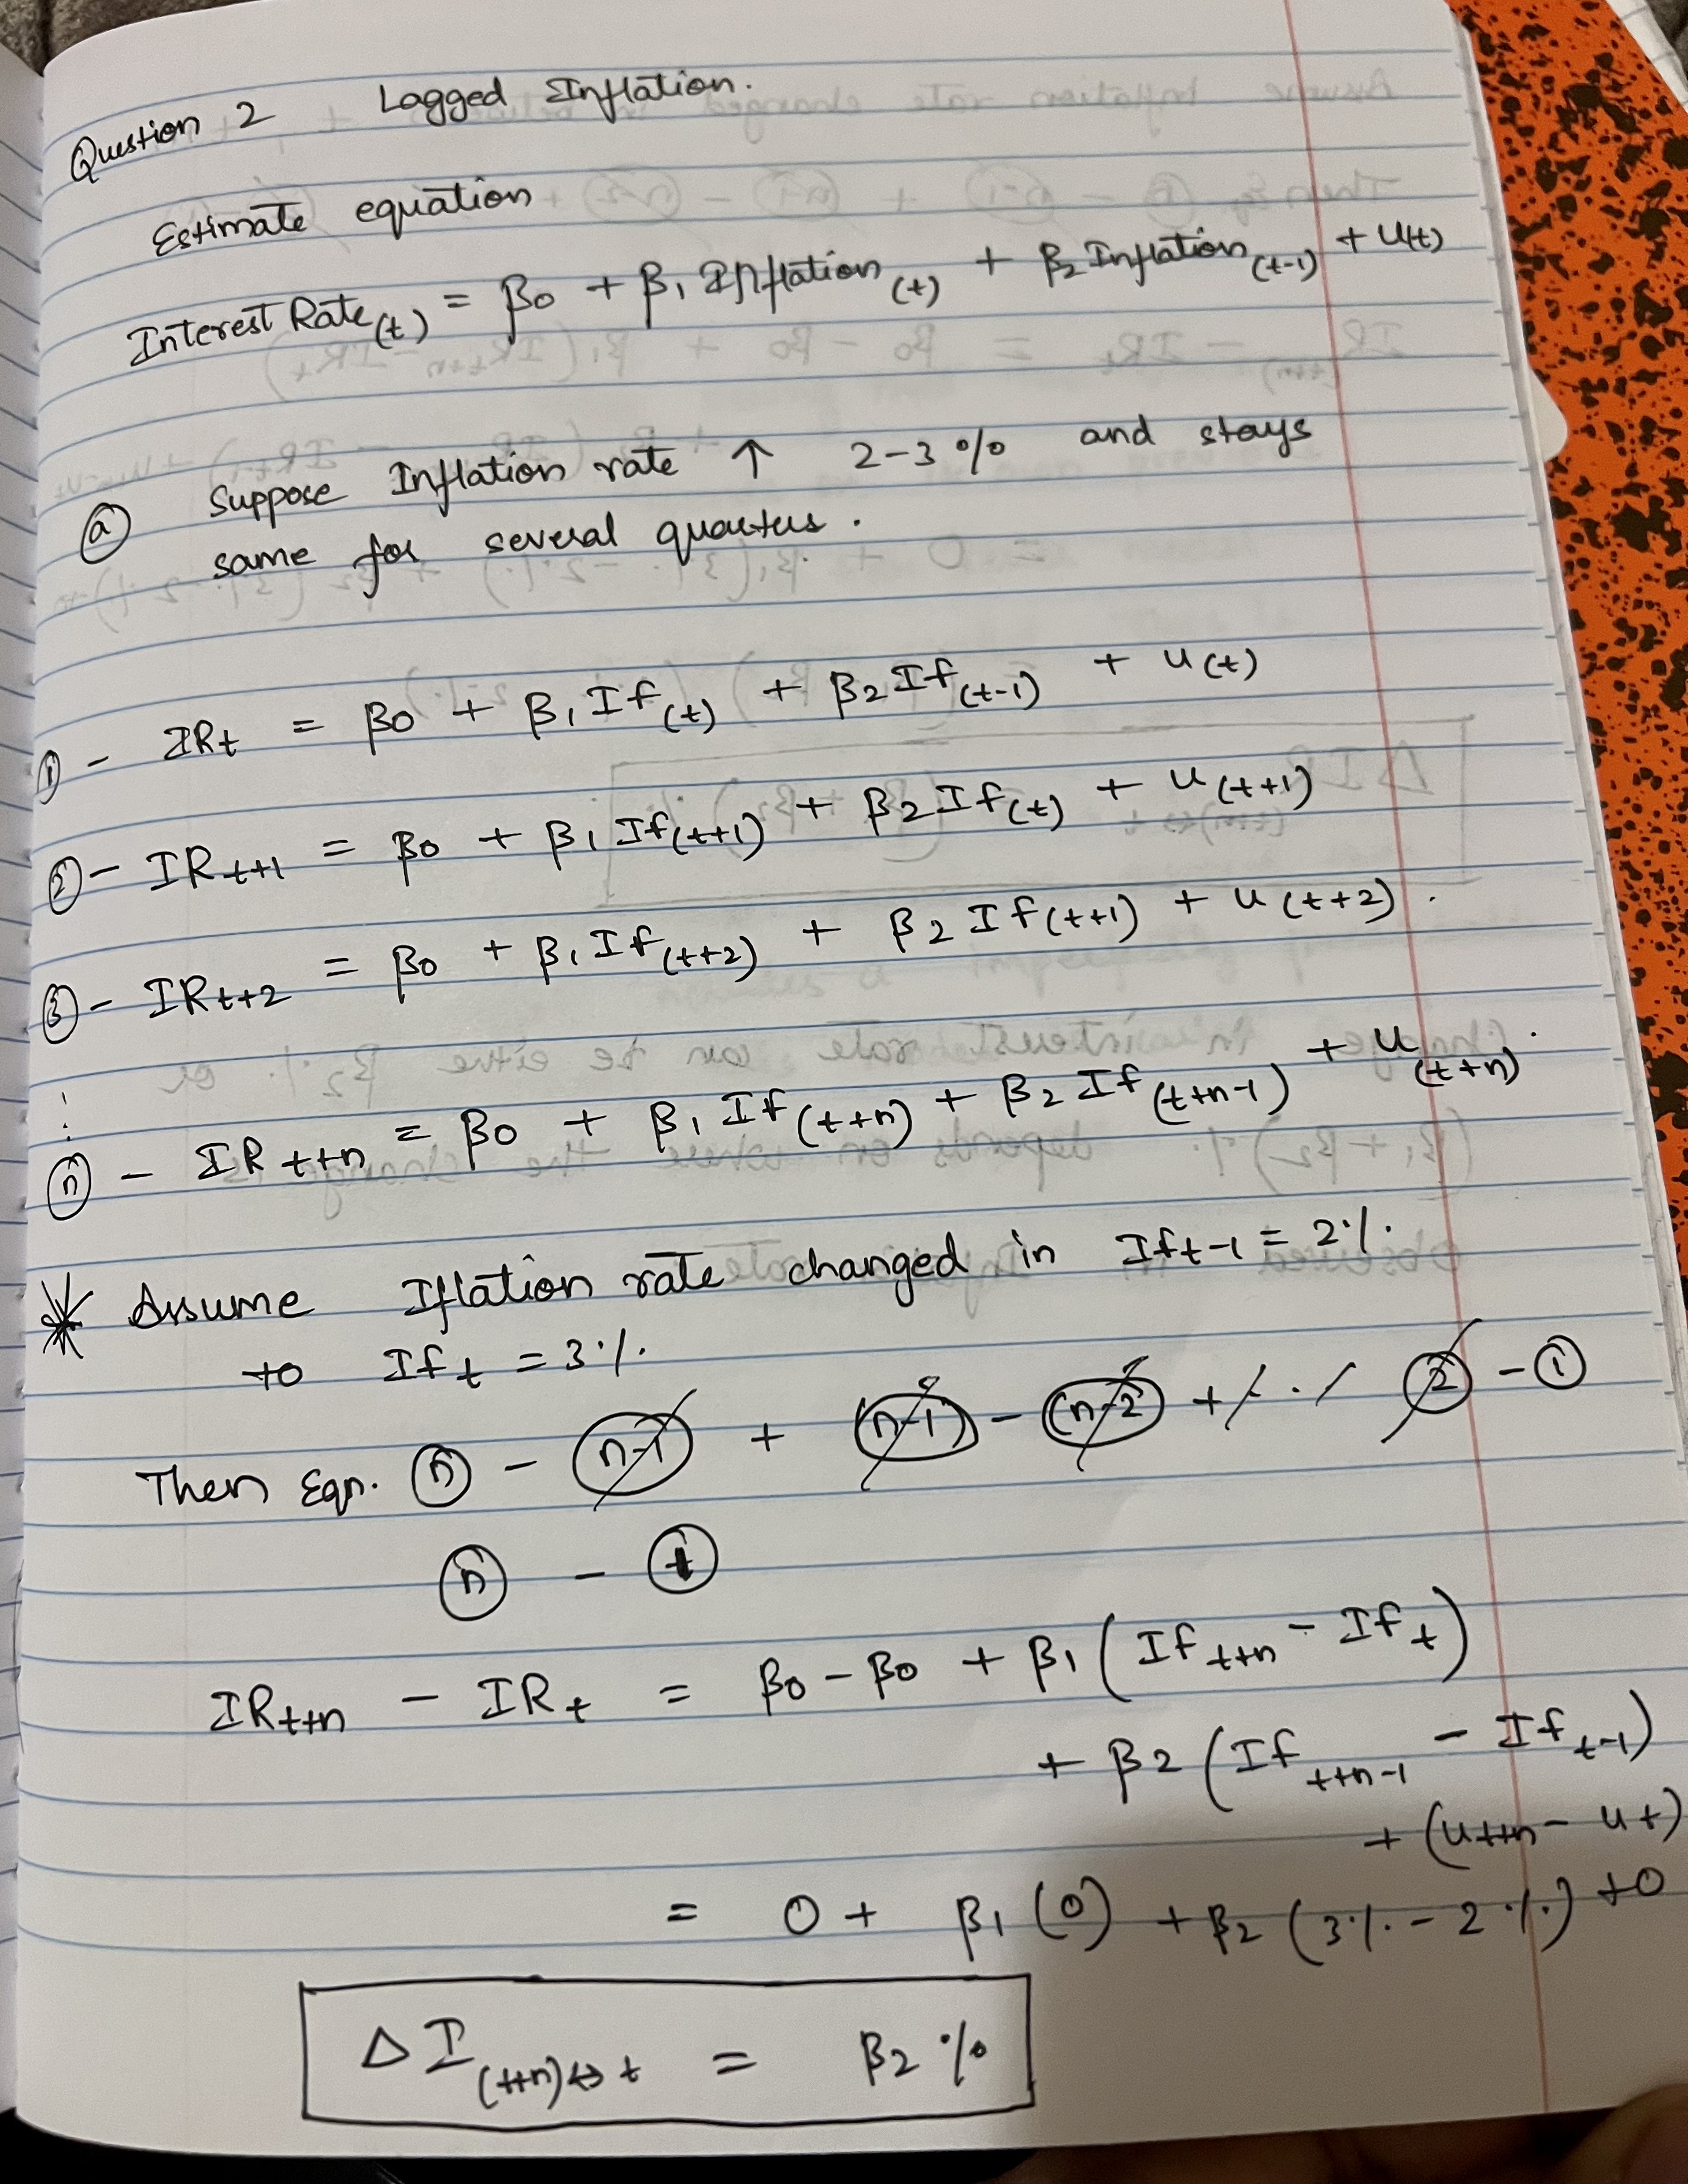 Question 2 Lagged Inflation.
Estimate equation
Interest Rate(t) = β0 + β1 Inflation(t) + β2 Inflation(t-1) + U(t)
(a) Suppose Inflation rate ↑ 2-3% and stays
same for several quarters.
① - IRt = β0 + β1 If(t) + β2 If(t-1) + u(t)
② - IRt+1 = β0 + β1 If(t+1) + β2 If(t) + u(t+1)
③ - IRt+2 = β0 + β1 If(t+2) + β2 If(t+1) + u(t+2).
⋮
ⓝ - IRt+n = β0 + β1 If(t+n) + β2 If(t+n-1) + u(t+n).
* Assume Iflation rate changed in Ift-1 = 2%.
to Ift = 3%.
Then Eqn. ⓝ - (n-1) + (n-1) - (n-2) + / . / ② - ①
ⓝ - ①
IRt+n - IRt = β0 - β0 + β1 (Ift+n - Ift)
+ β2 (Ift+n-1 - Ift-1)
+ (ut+n - ut)
= 0 + β1 (0) + β2 (3% - 2%) + 0
Δ I(t+n)↔t = β2 %